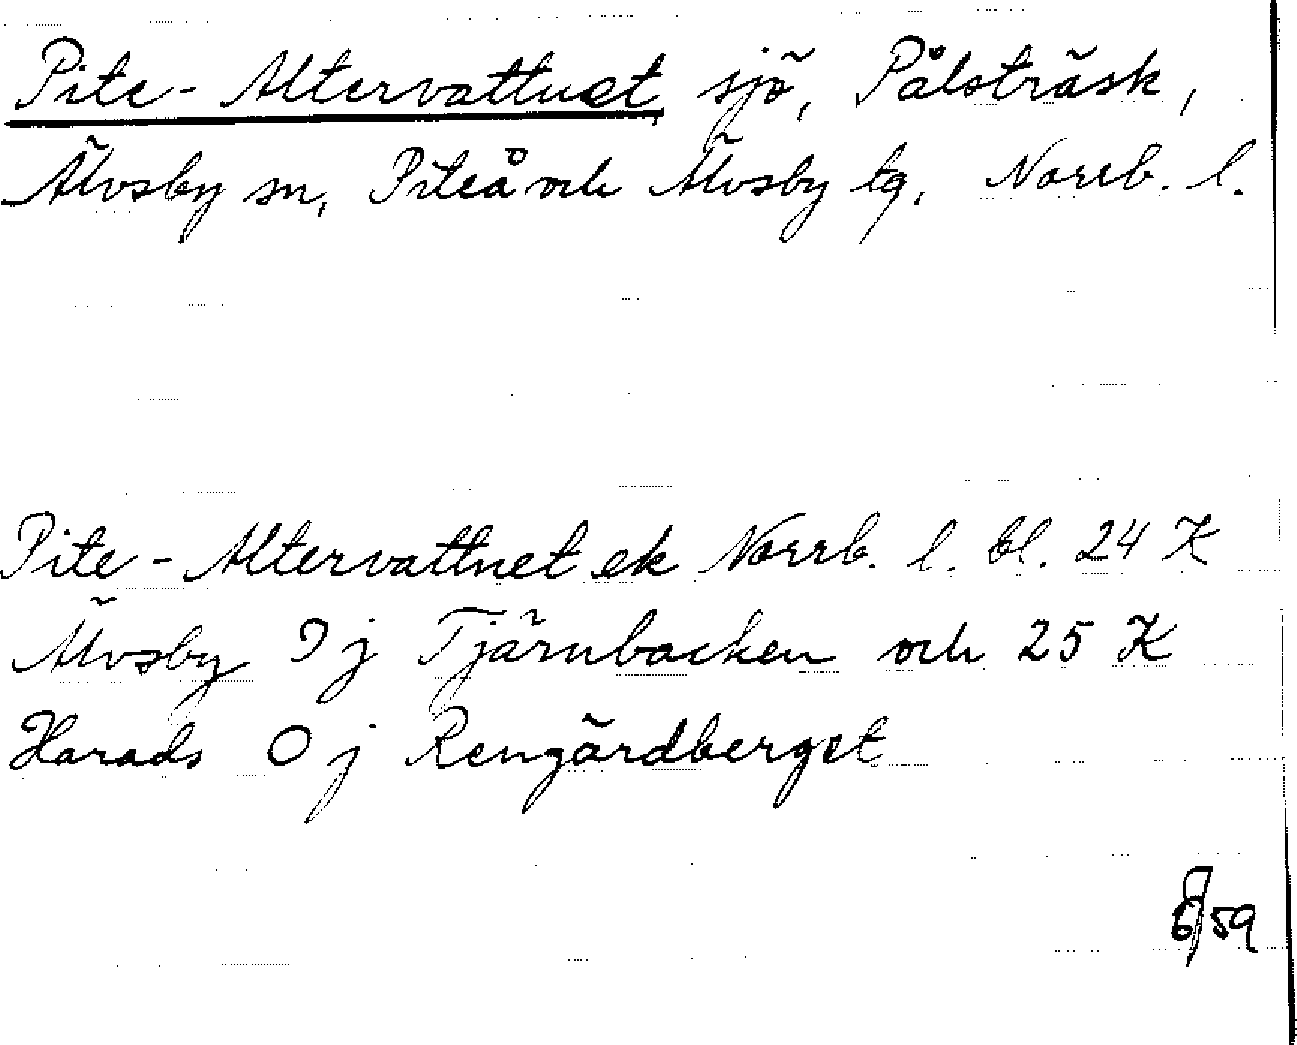 Pite-Altervattnet sjö, Pålsträsk,
Älvsby sn, Piteå och Älvsby tg, Norrb. l.
Pite-Altervattnet ek Norrb. l. bl. 24 K
Älvsby 9 j Tjärnbacken och 25 K
Harads 0 j Rengärdberget
59